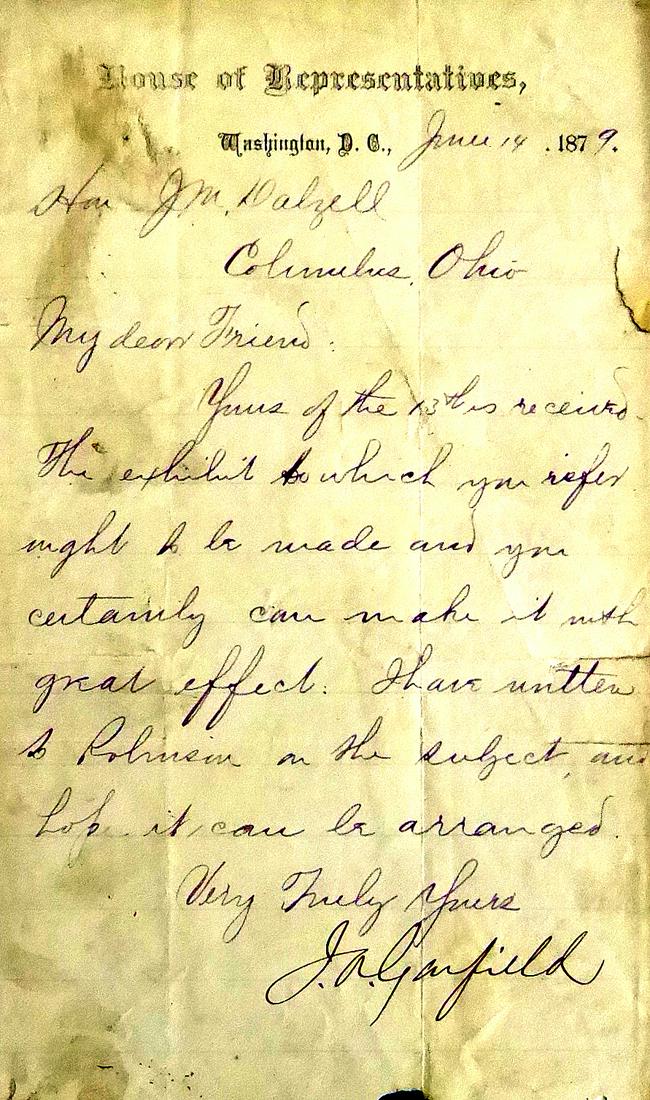 House of Representatives,
Washington, D. C., June 14. 1879.
Hon J M. Dalzell
Columbus, Ohio
My dear Friend.
Yours of the 13th is received.
The exhibit to which you refer
ought to be made and you
certainly can make it with
great effect. I have written
to Robinson on the subject, and
hope it can be arranged.
Very Truly Yours
J. A. Garfield